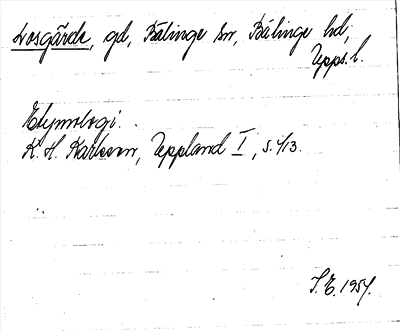 Losgärde, gd, Bälinge sn, Bälinge hd,
Upps. l.
Etymologi.
K. H. Karlsson, Uppland I, s. 413.
S.E. 1957.